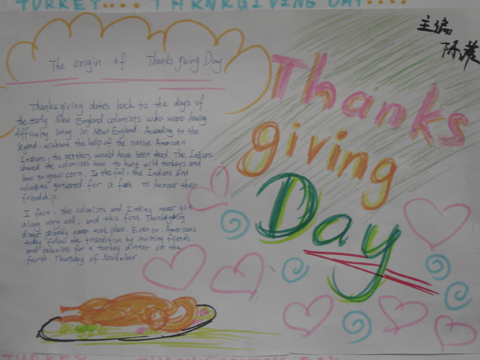 TURKEY.... THANKGIVING DAY....
主编
The origin of Thanksgiving Day
Thanks
giving
Day
Thanksgiving dates back to the days of
the early New England colonises who were having
difficulty living in New England. According to the
legend, without the help of the native American
Indians, the settlers would have been dead. The Indians
showed the colonises how to hung wild turkeys and
how to grow corn. In the fall, the Indians and
whites gathered for a feat to honour their
friendship.
I fact, the colonists and Indians never got
along very well, and this first Thanksgiving
dinner probably never took place. Even so, Americans
today follow the tradition by inviting friends
and relatives for a turkey dinner on the
fourth Thursday of November.
TURKEY